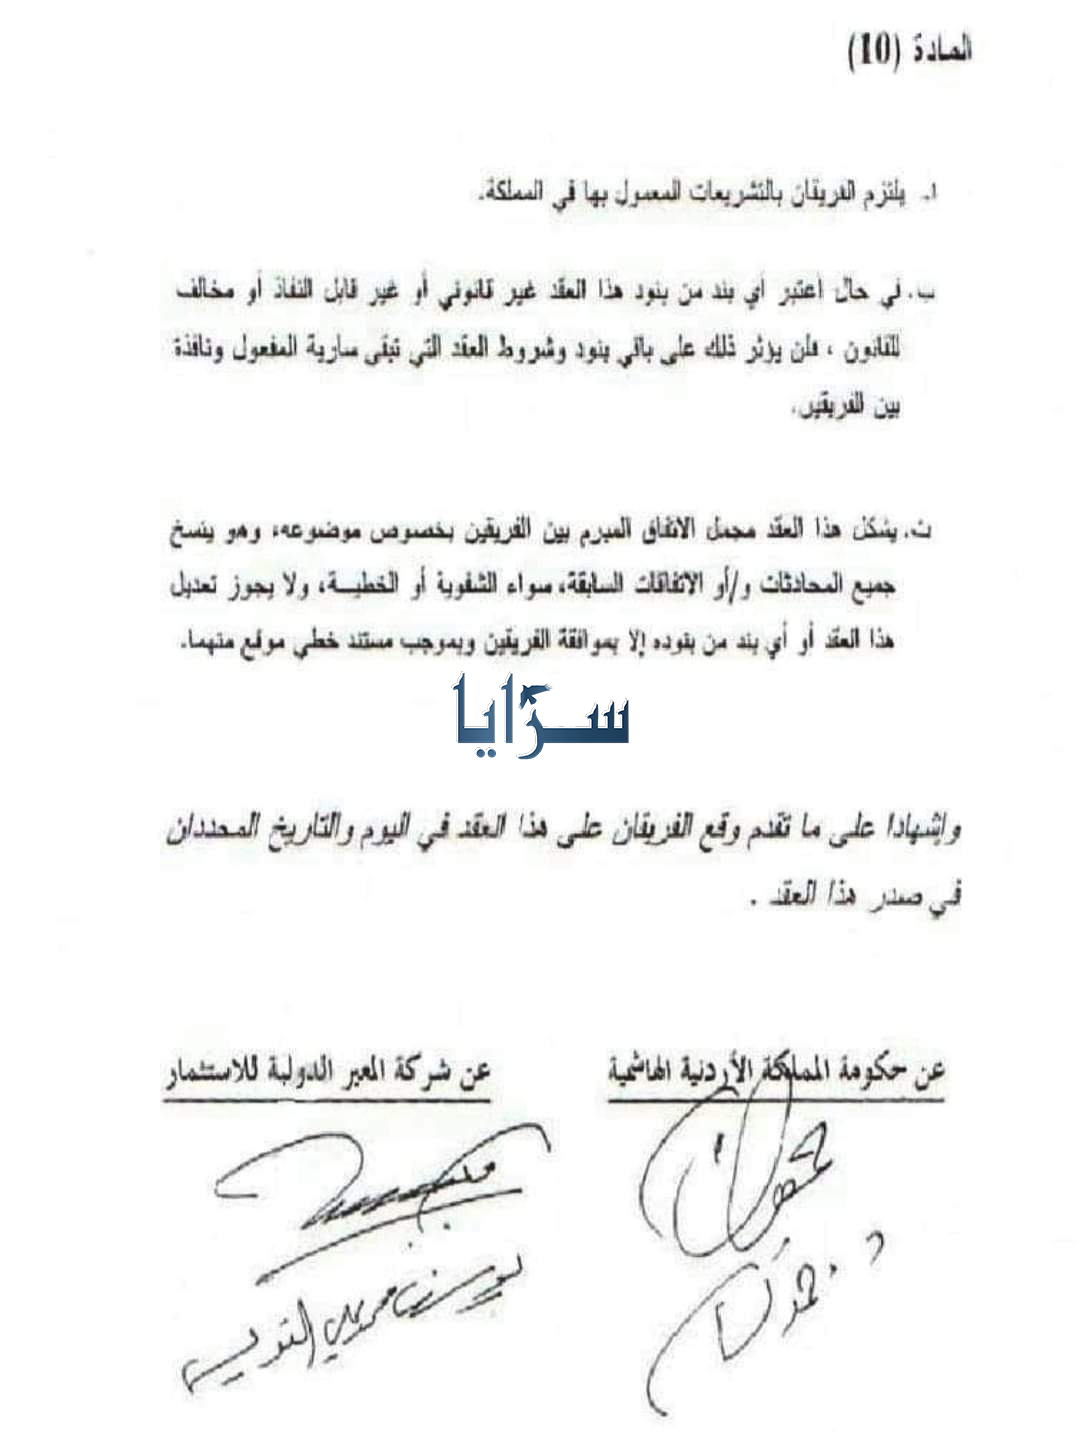 المادة (10)
ا. يلتزم الفريقان بالتشريعات المعمول بها في المملكة.
ب. في حال اعتبر أي بند من بنود هذا العقد غير قانوني أو غير قابل النفاذ أو مخالف
للقانون ، فلن يؤثر ذلك على باقي بنود وشروط العقد التي تبقى سارية المفعول ونافذة
بين الفريقين.
ث. يشكل هذا العقد مجمل الاتفاق المبرم بين الفريقين بخصوص موضوعه، وهو ينسخ
جميع المحادثات و/أو الاتفاقات السابقة، سواء الشفوية أو الخطيـــة، ولا يجوز تعديل
هذا العقد أو أي بند من بنوده إلا بموافقة الفريقين وبموجب مستند خطي موقع منهما.
سرايا
وإشهادا على ما تقدم وقع الفريقان على هذا العقد في اليوم والتاريخ المحددان
في صدر هذا العقد .
عن حكومة المملكة الأردنية الهاشمية
عن شركة المعبر الدولية للاستثمار